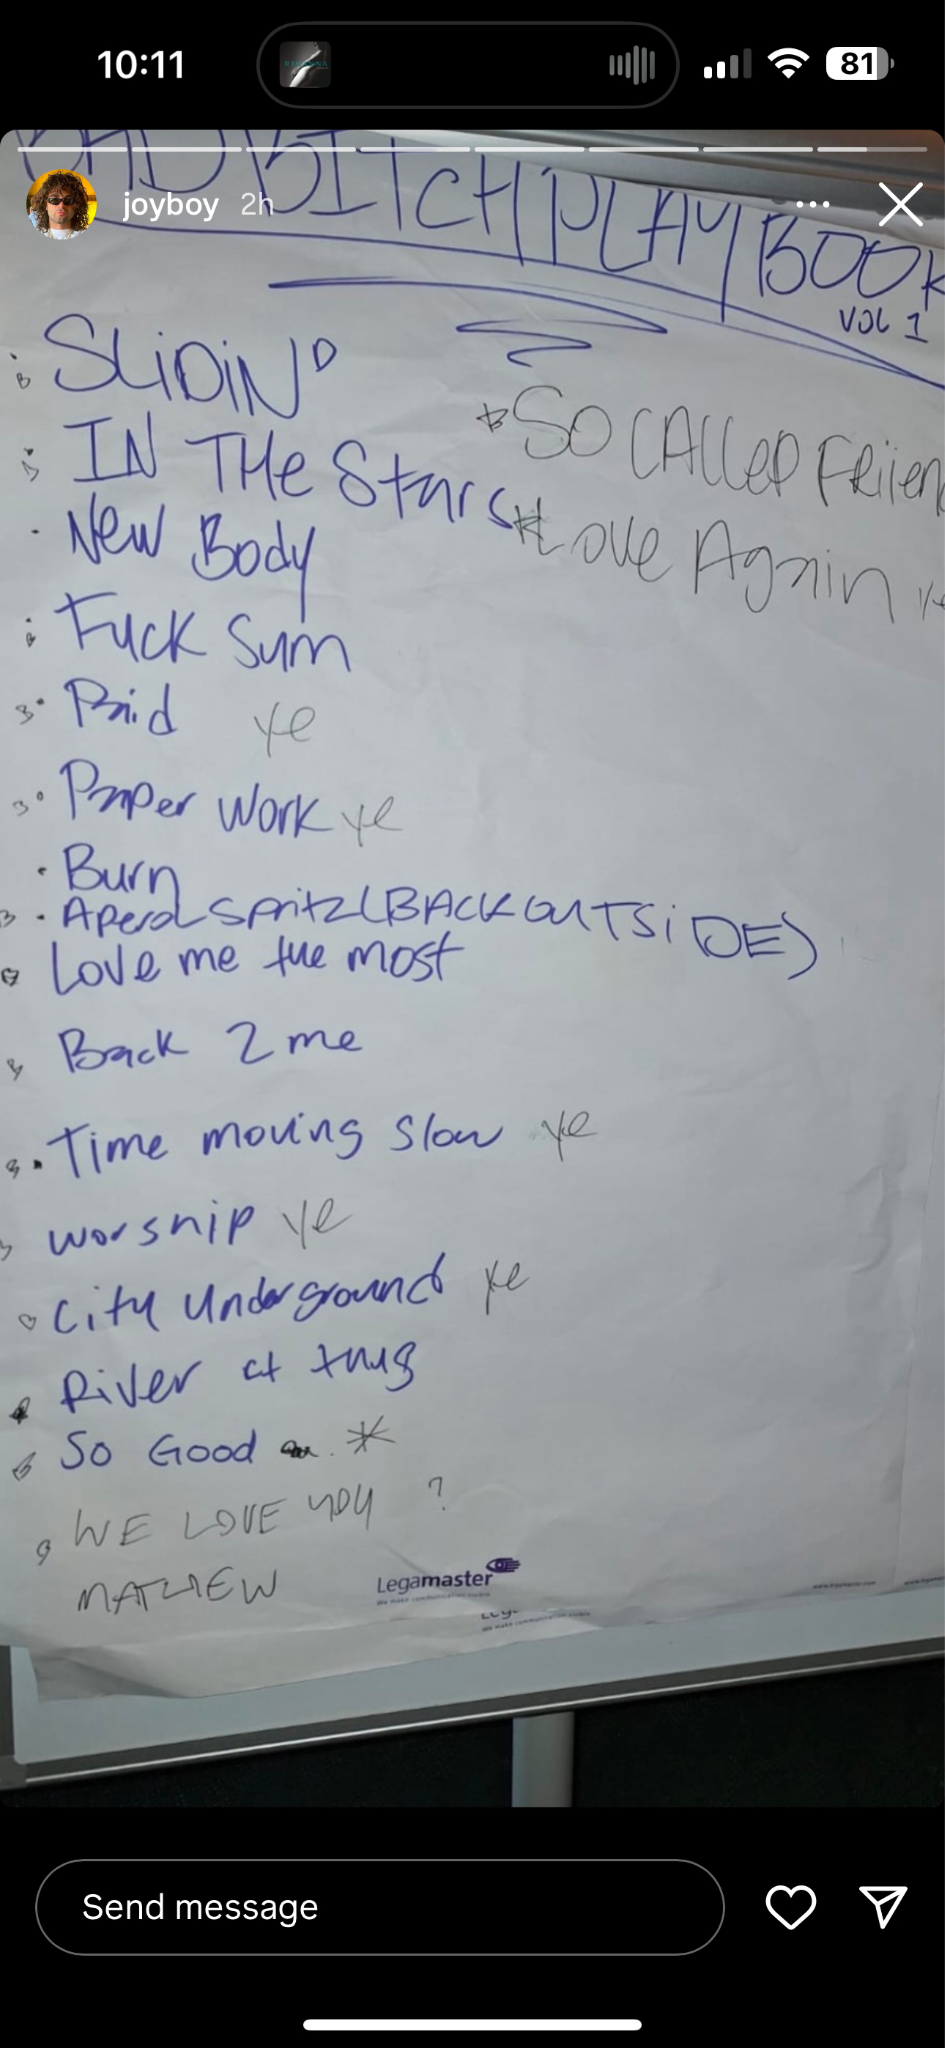 10:11
81
joyboy 2h
BAD BITCH PLAY BOOK
VOL 1
SLiDiN
IN THe Stars
New Body
Fuck Sum
Paid ye
Paper Work ye
Burn
Aperol Spritz (BACK OUTSiDE)
Love me the most
Back 2 me
Time moving slow ye
worship ye
City Underground ye
River at thug
So Good *
WE LOVE YOU ?
MATHEW
* SO CAlled Friien
* Love Again ye
Legamaster
Send message